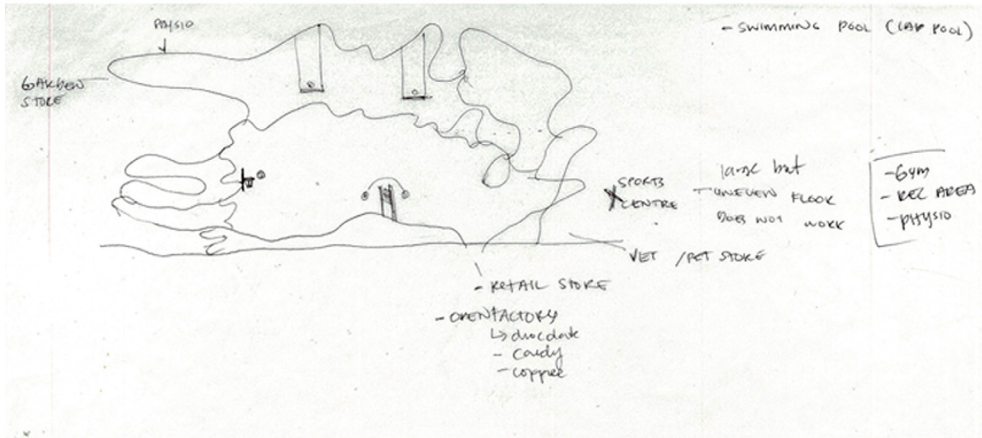 PHYSIO
- SWIMMING POOL (LAP POOL)
GARDEN
STORE
SPORTS
CENTRE
large but
UNEVEN FLOOR
DOES NOT WORK
- GYM
- REC AREA
- PHYSIO
VET / PET STORE
- RETAIL STORE
- OPEN FACTORY
↳ chocolate
- candy
- coppee